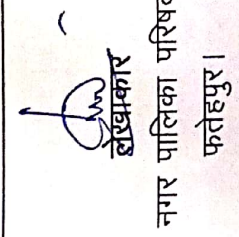 लेखाकार
नगर पालिका परिषद
फतेहपुर।